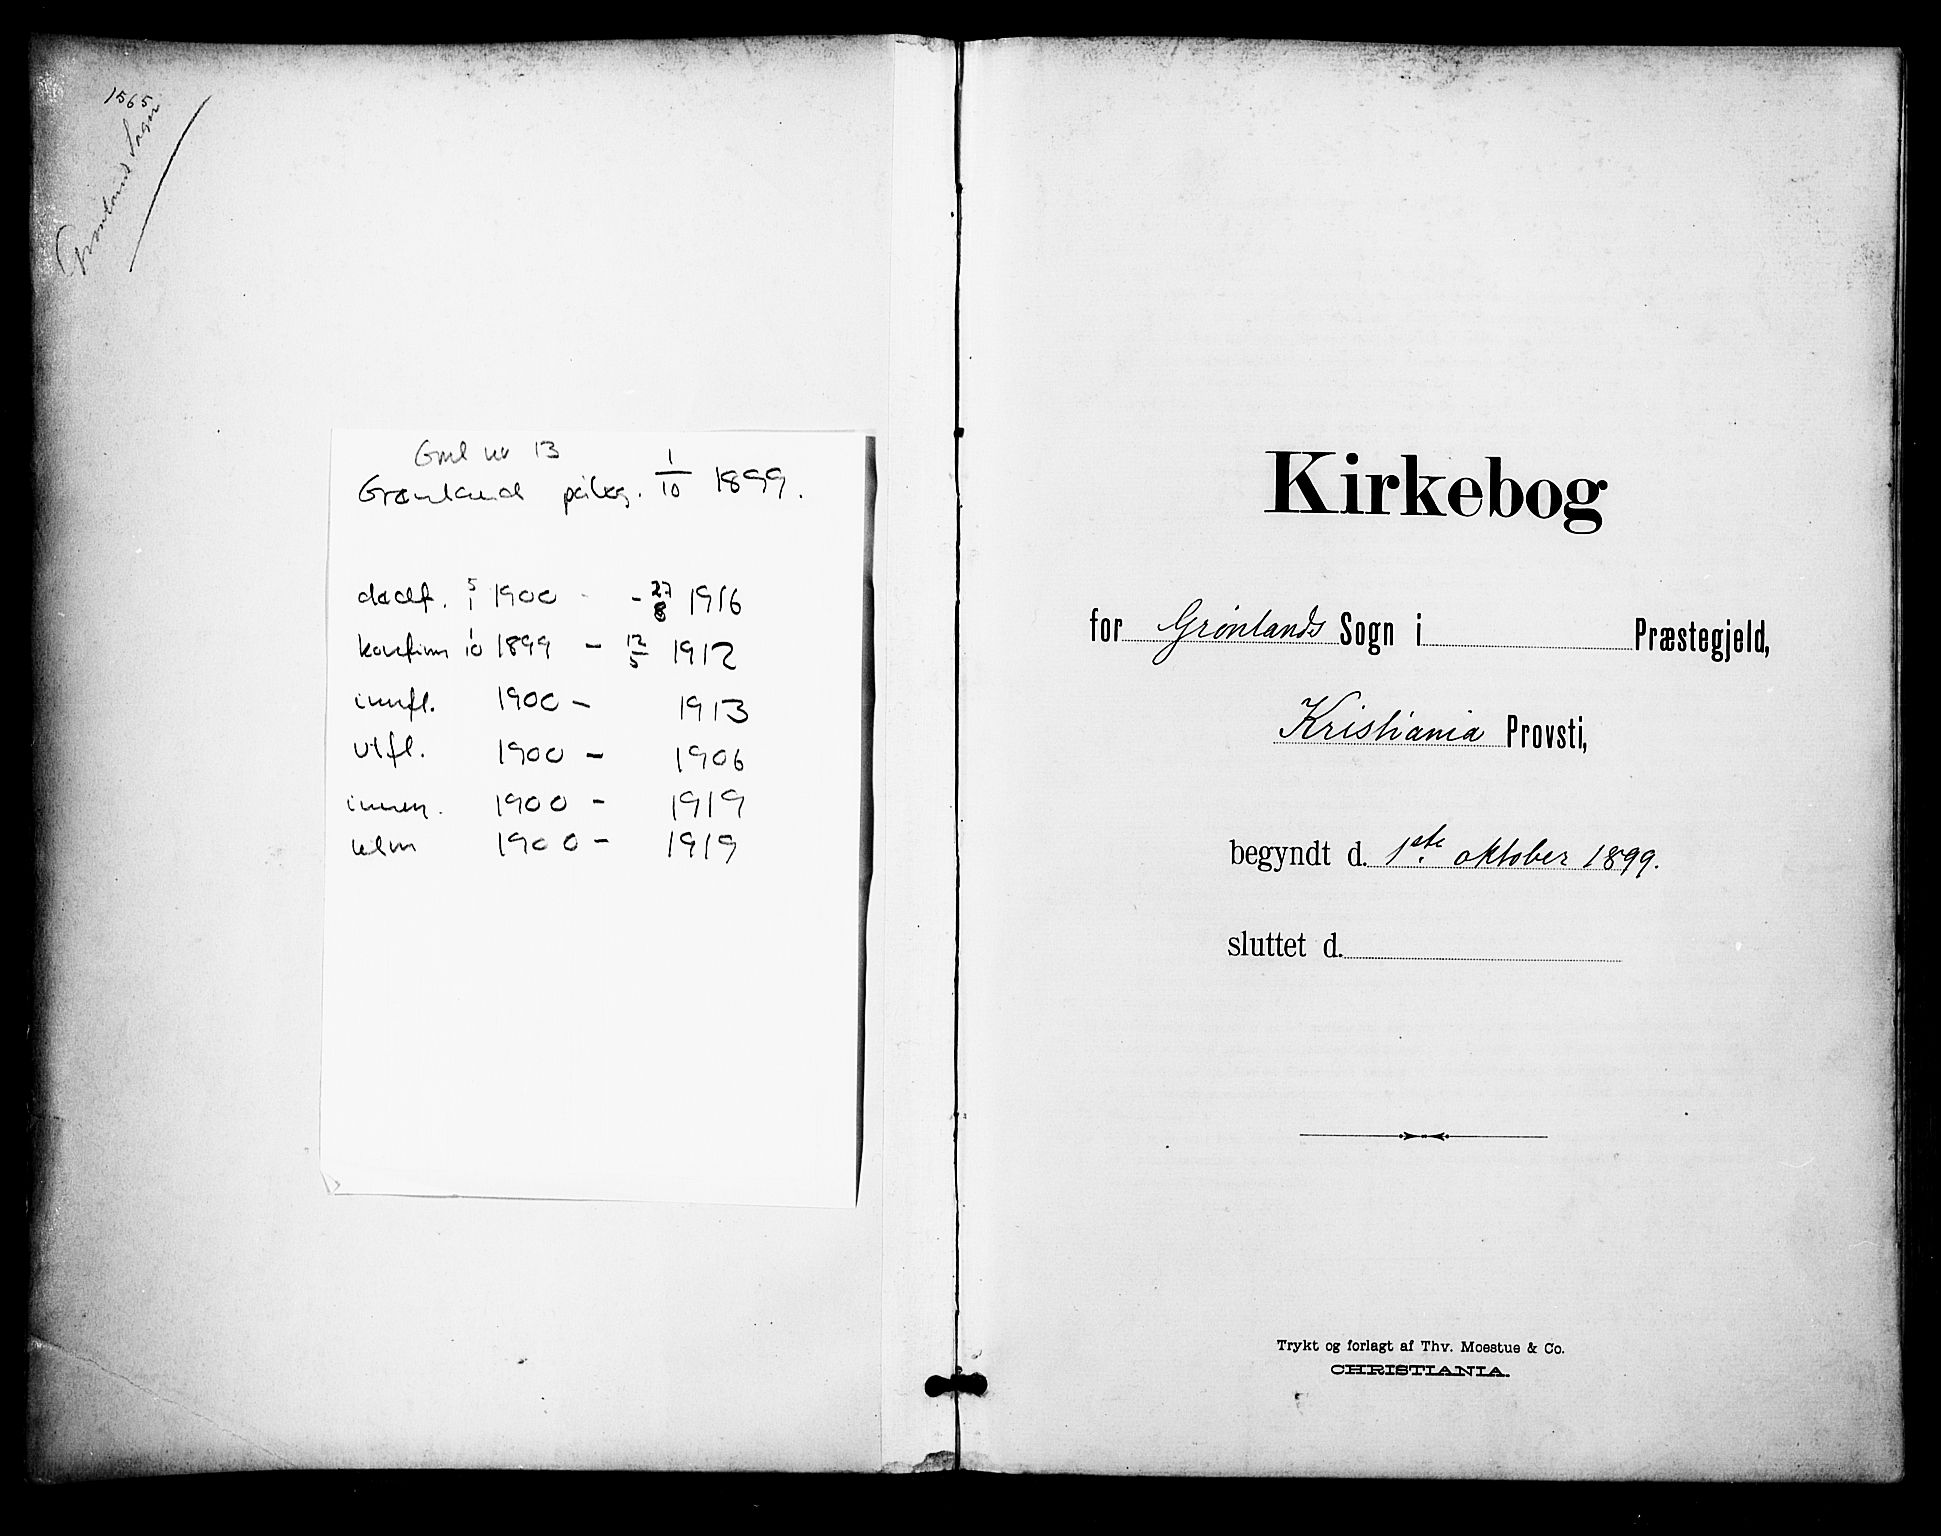 1565
Grønland Sogn
Gml nr 13
Grønland påbeg. 1/10 1899.
dødf. 5/1 1900 - 27/8 1916
konfirm 1/10 1899 - 12/5 1912
innfl. 1900 - 1913
utfl. 1900 - 1906
innm. 1900 - 1919
utm 1900 - 1919
Kirkebog
for Grønlands Sogn i Præstegjeld,
Kristiania Provsti,
begyndt d. 1ste oktober 1899.
sluttet d.
Trykt og forlagt af Thv. Moestue & Co.
CHRISTIANIA.